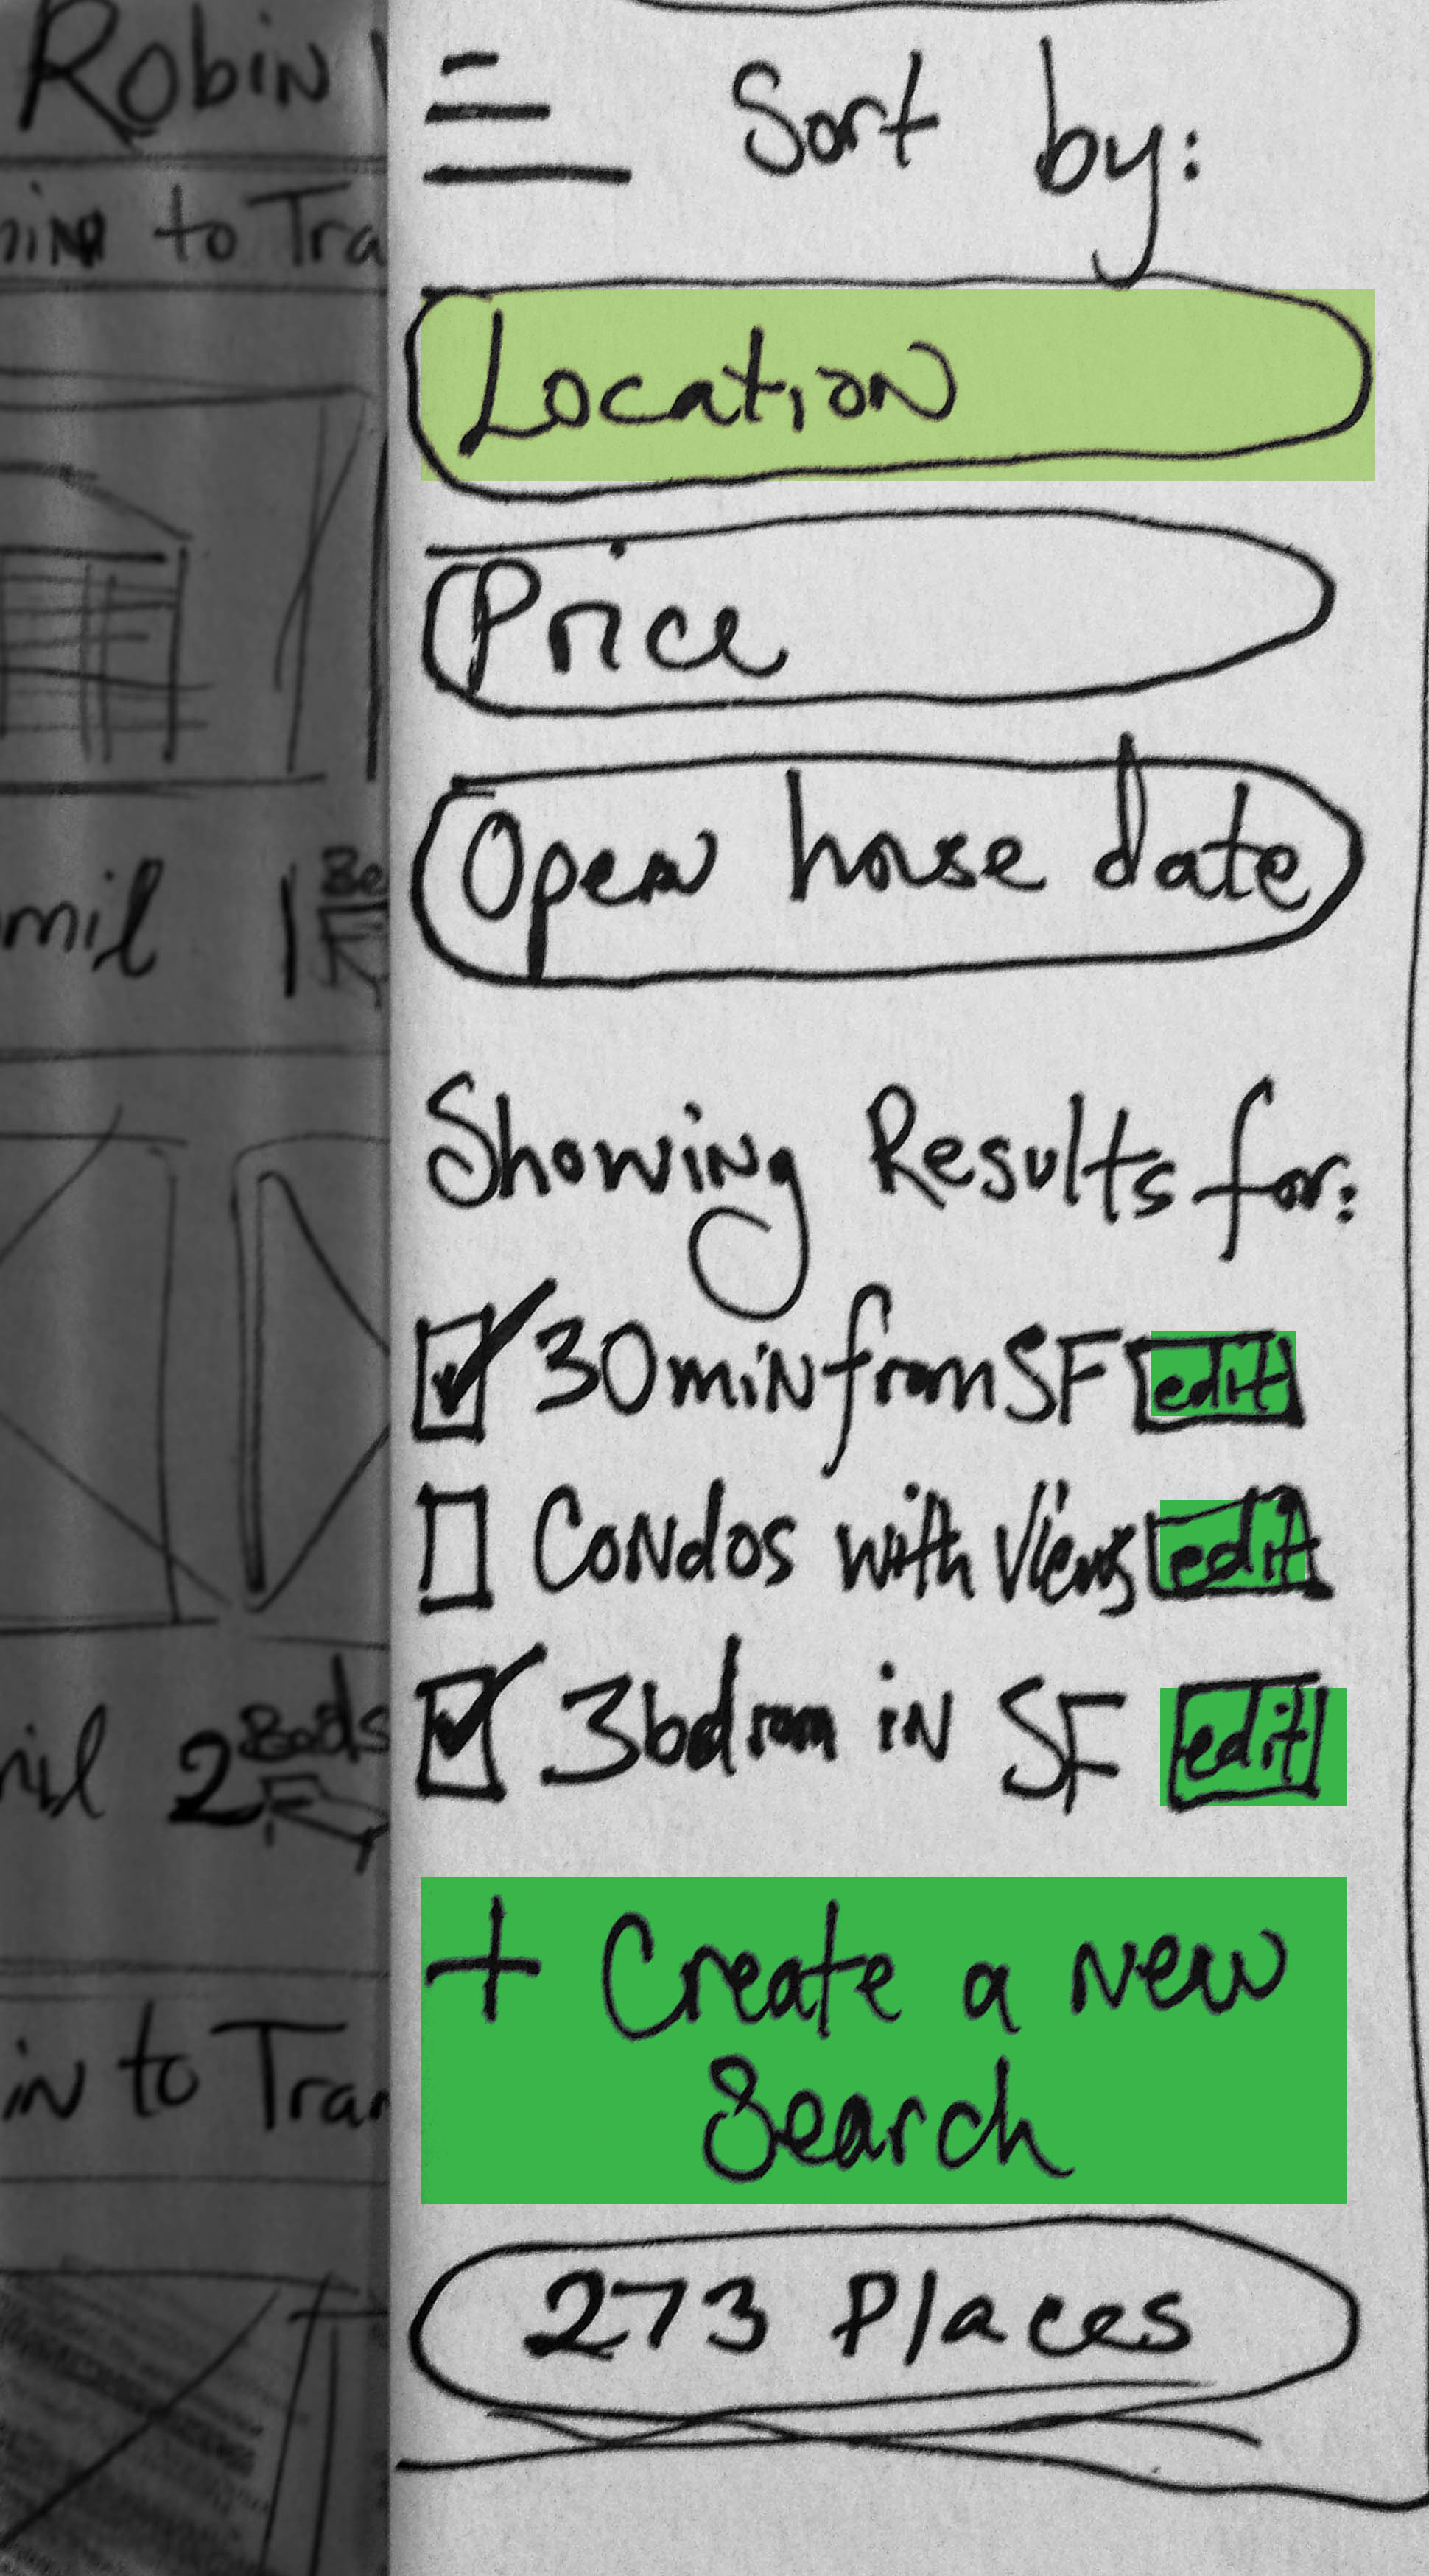 Robin
to Tra
mil 1 Be
mil 2 Beds
in to Tran
Sort by:
Location
Price
Open house date
Showing Results for:
30min from SF edit
Condos with Views edit
3bdrom in SF edit
+ Create a new
Search
273 Places